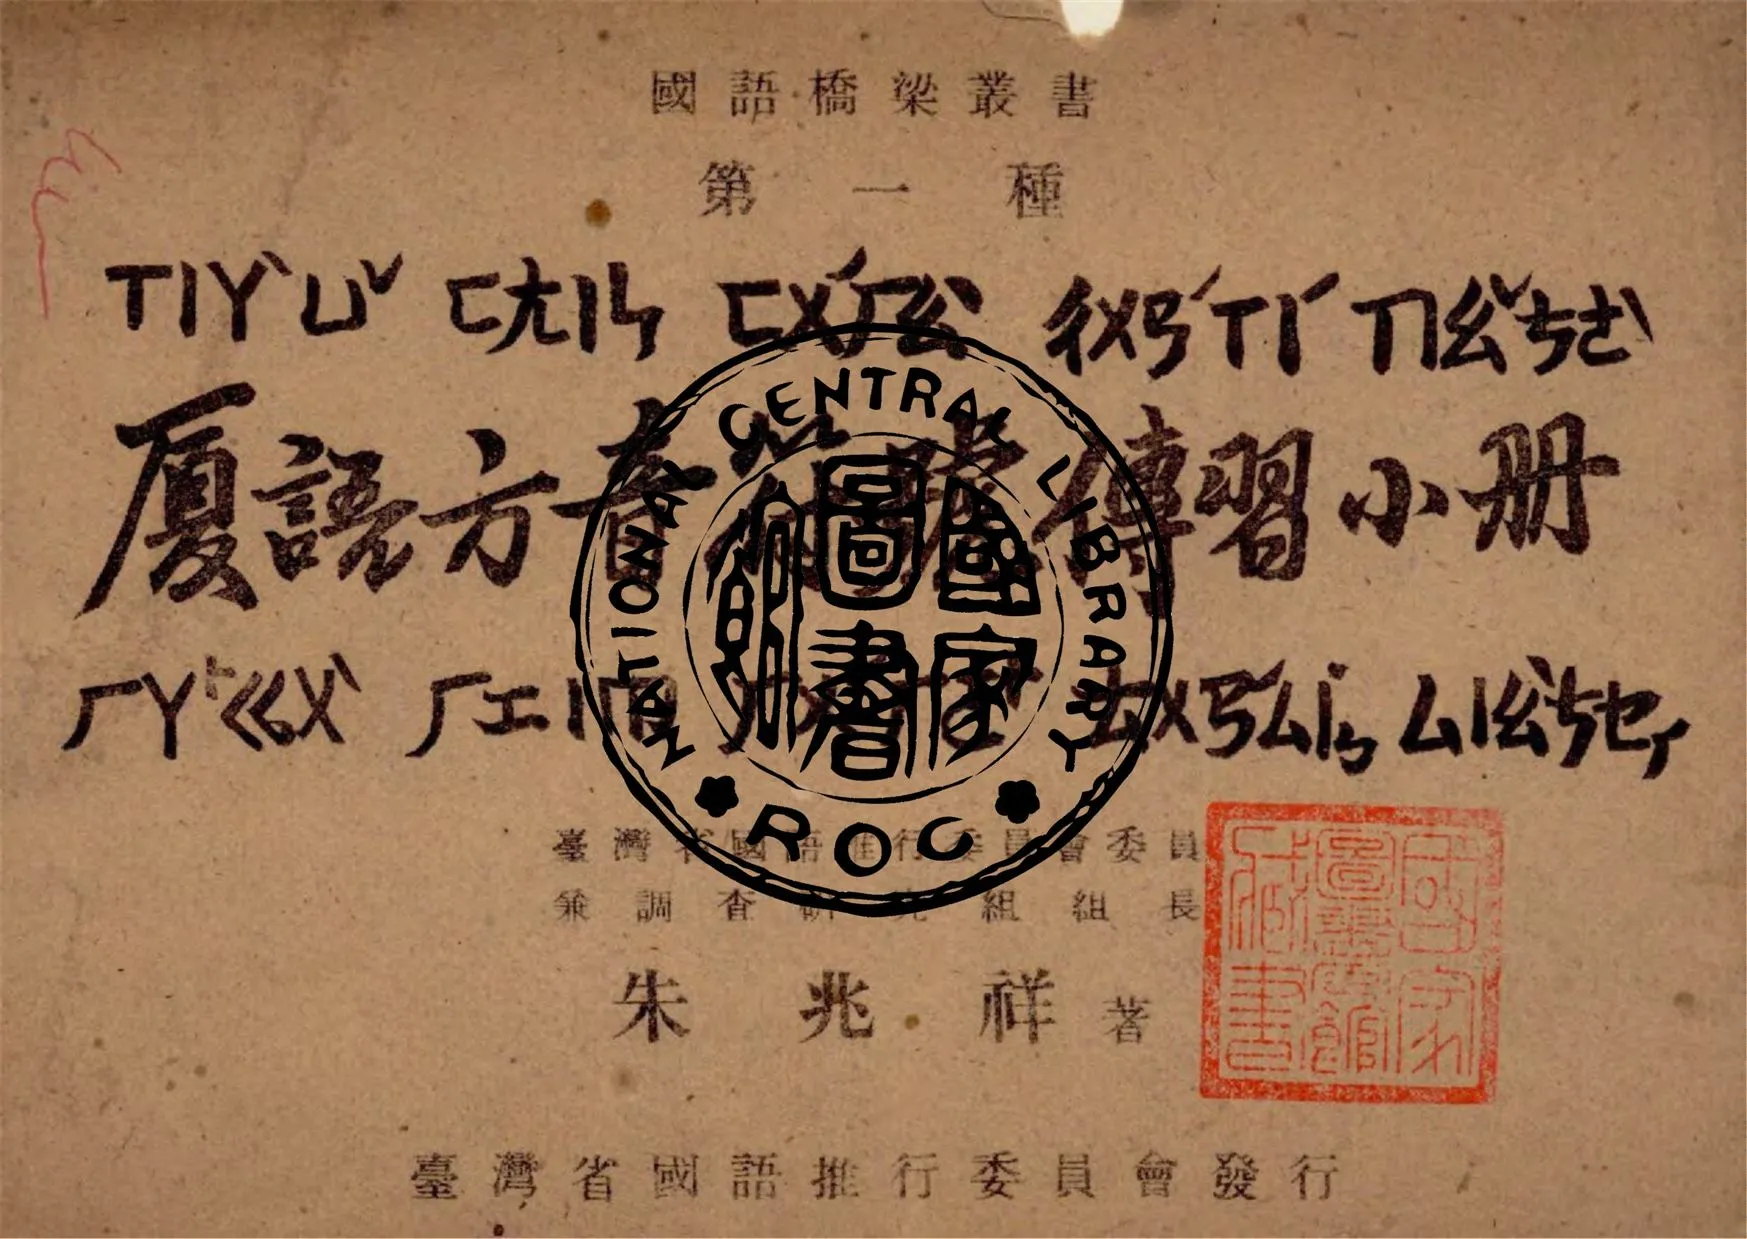 國語橋梁叢書
第一種
ㄒㄧㄚˋㄩˇ ㄈㄤㄧㄣ ㄈㄨˊㄏㄠˋ ㄔㄨㄢˊㄒㄧˊ ㄒㄧㄠˇㄘㄜˋ
厦語方音符號傳習小册
ㄏㄚ˫ㆣㄨˋ ㄙㄧㄠˋ
臺灣省國語推行委員會委員
兼調查研究組組長
朱兆祥著
臺灣省國語推行委員會發行
NATIONAL CENTRAL LIBRARY
ROC
國家圖書館
國家圖書館藏書